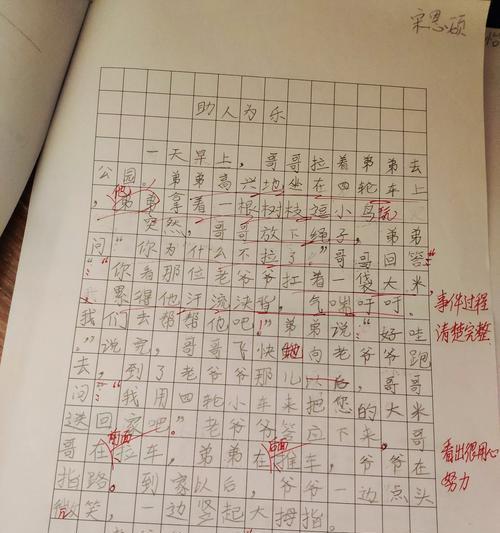 宋恩硕
助人为乐
一天早上，哥哥拉着弟弟去
公园。弟弟高兴地坐在四轮车上
，弟弟拿着一根树枝逗小鸟玩
他
突然，哥哥放下绳子，弟弟
问“你为什么不拉了”哥哥回答
：“你看那位老爷爷扛着一袋大米，
累得他汗流浃背，气喘吁吁。
我们去帮帮他吧！”弟弟说：“好哇
。”说完，哥哥飞快地向老爷爷跑
去，到了老爷爷那儿以后，哥哥
问：“我用四轮小车来把您的大米
送回家吧。”老爷爷答应下来。哥
前面
后面
哥在拉车，弟弟在推车，爷爷在
指路。到家以后，爷爷一边点头
微笑，一边竖起大拇指。
事件过程
清楚完整
看出很用心
努力